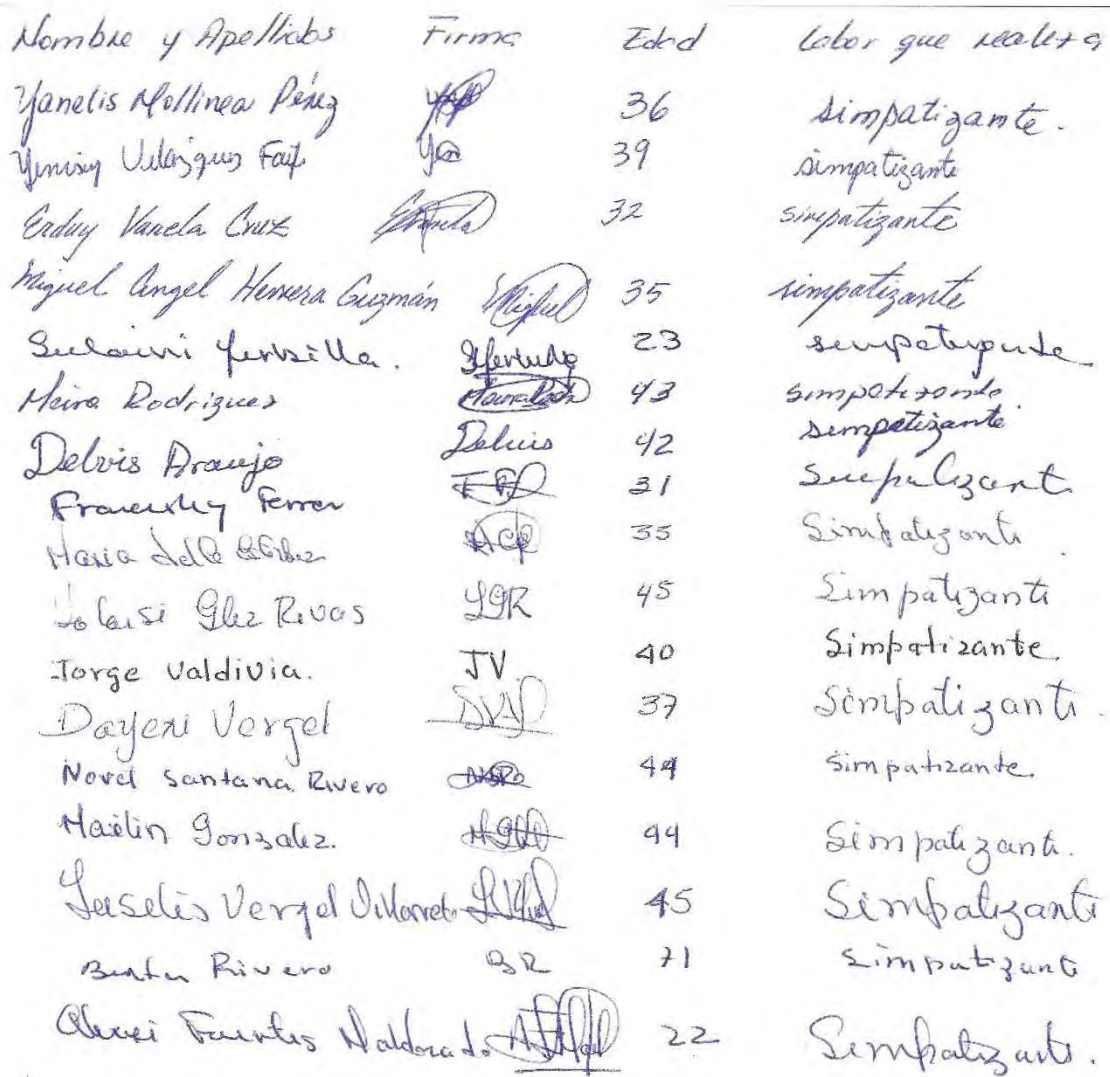 Nombre y Apellidos Firma Edad Labor que realiza
Yanelis Mollinea Pérez 36 simpatizante.
Yenisey Velázquez 39 simpatizante
Erduy Varela Cruz 32 simpatizante
Miguel Angel Herrera Guzmán Miguel 35 simpatizante
23 simpatizante
Maira Rodriguez 43 simpatizante
Delvis Araujo Delvis 42 simpatizante
Ferrer 31 Simpatizante
Maria 35 Simpatizante
Glez Rivas LGR 45 Simpatizante
Jorge Valdivia. JV 40 Simpatizante.
Dayexi Vergel 37 Simpatizante.
Novel Santana Rivero 44 Simpatizante.
Mailin Gonzalez. 44 Simpatizante.
Vergel 45 Simpatizante
Rivero BR 71 Simpatizante
Fuentes Maldonado 22 Simpatizante.